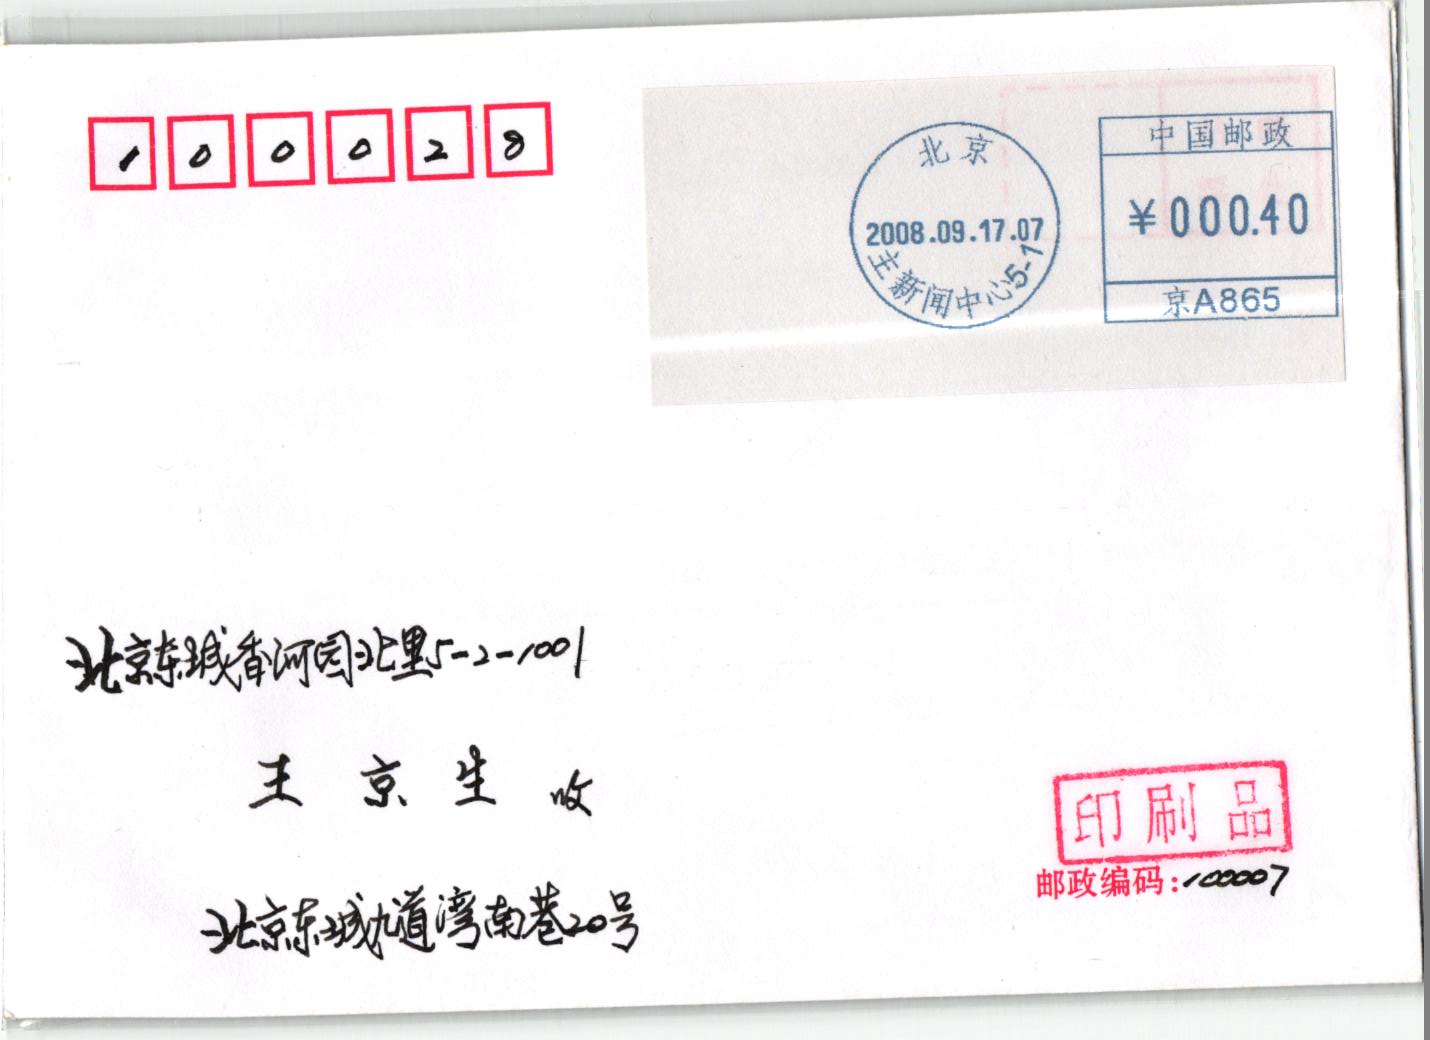 100028
北京
2008.09.17.07
主新闻中心5-1
中国邮政
¥000.40
京A865
北京东城香河园北里5-2-1001
王京生 收
印刷品
邮政编码:100007
北京东城九道湾南巷20号